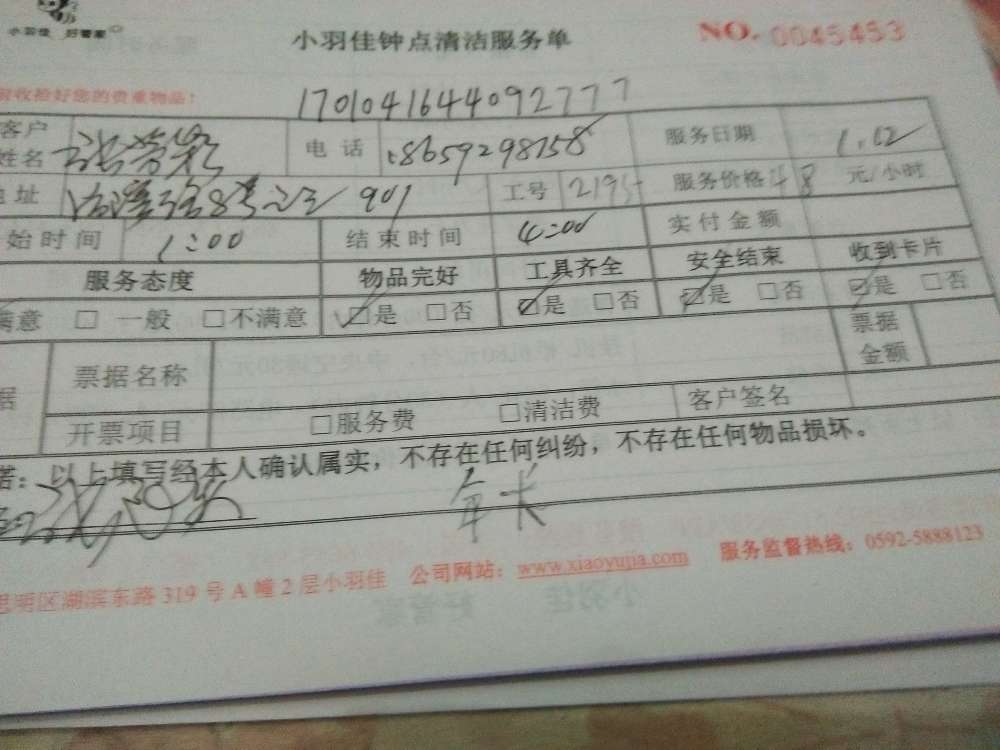 小羽佳 好管家
小羽佳钟点清洁服务单 NO. 0045453
收拾好您的贵重物品!
1701041644092777
客户姓名 电话 18659298758 服务日期 1.12
地址 901 工号 2195 服务价格 48 元/小时
始时间 1:00 结束时间 4:00 实付金额
服务态度 物品完好 工具齐全 安全结束 收到卡片
满意 □ 一般 □不满意 ☑是 □否 ☑是 □否 ☑是 □否 ☑是 □否
据 票据名称 票据金额
开票项目 □服务费 □清洁费 客户签名
诺：以上填写经本人确认属实，不存在任何纠纷，不存在任何物品损坏。
年卡
思明区湖滨东路319号A幢2层小羽佳 公司网站：www.xiaoyujia.com 服务监督热线：0592-5888123